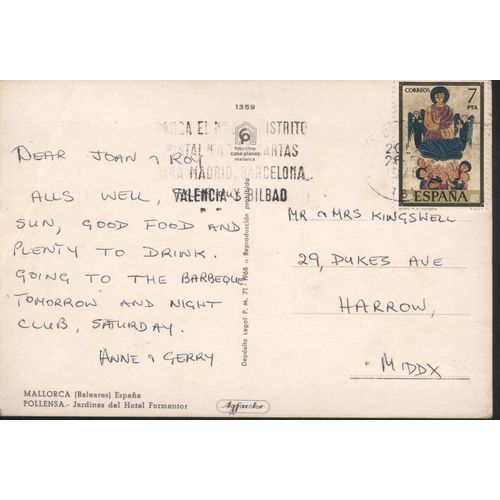 1359
DISTRITO
CARTAS
MADRID, BARCELONA,
VALENCIA BILBAO
foto cine
casa planas
mallorca
CORREOS 7
PTA
ESPAÑA
DEAR JOAN & ROY
ALLS WELL,
SUN, GOOD FOOD AND
PLENTY TO DRINK.
GOING TO THE BARBEQUE
TOMORROW AND NIGHT
CLUB, SATURDAY.
ANNE & GERRY
MR & MRS KINGSWELL
29, DUKES AVE
HARROW,
MIDDX
Depósito Legal P. M. 71-1968 :: Reproducción prohibida
MALLORCA (Baleares) España
POLLENSA.- Jardines del Hotel Formentor
Agfacolor